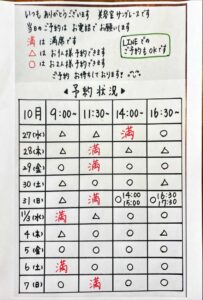 いつもありがとうございます 美容室サンプレースです
当日のご予約は お電話でお願いします
満 は 満席です
△ は お1人様予約できます
○ は お2人様予約できます
LINEでの
ご予約もOKです
ご予約 お待ちしております!
◀予約状況▶
10月 9:00〜 11:30〜 14:00〜 16:30〜
27(水) △ △ 満 ○
28(木) △ 満 △ △
29(金) ○ 満 ○ ○
30(土) △ ○ ○ △
31(日) △ 満 ○14:00 15:00 ○16:30 17:30
11/3(水) 満 △ ○ △
4(木) △ ○ ○ △
5(金) ○ ○ ○ ○
6(土) 満 ○ ○ ○
7(日) ○ 満 ○ ○